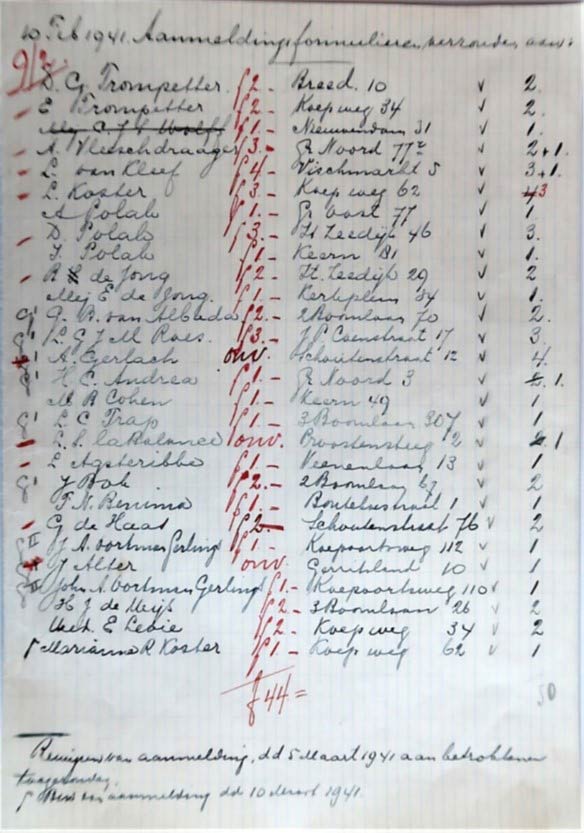 10 Feb 1941. Aanmeldingsformulieren verzonden aan:
9/2
D. G. Trompetter f 2.- Breed. 10 v 2.
E Trompetter f 2.- Koepweg 34 v 2.
Mej C. J. E Wolff f 1.- Nieuwendam 31 v 1.
A. Vleeschdraager f 3.- Gr Noord 77 v 2+1.
L. van Kleef f 4.- Vischmarkt 5 v 3+1.
L. Koster f 3.- Koepweg 62 v 3
A Polak f 1.- Gr Oost 77 v 1.
D. Polak f 3.- Ht Zeedijk 46 v 3.
J. Polak f 1.- Keern 81 v 1.
R de Jong f 2.- Ht. Zeedijk 29 v 2
Mej E de Jong. f 1.- Kerkplein 34 v 1.
G. B. van Albada f 2.- 2 Boomlaan 70 v 2.
L. G J M Roes. f 3.- J P Coenstraat 17 v 3.
A. Gerlach onv. Schoutenstraat 12 v 4.
H. C. Andrea f 1.- Gr Noord 3 v 1.
M R Cohen f 1.- Keern 49 v 1
L. C Trap f 1.- 3 Boomlaan 307 v 1
la Balance onv. Proostensteeg 2 v 1
L Agsteribbe f 1.- Veenenlaan 13 v 1
J Bok f 2.- 2 Boomlaan 67 v 2
F. N. Benima f 1.- Bontekoestraat 1 v 1
G de Haas f 2.- Schoutenstraat 76 v 2
J A. Oortman Gerlings f 1.- Koepoortsweg 112 v 1
J Alter onv. Gerritsland 10 v 1
John A. Oortman Gerlings f 1.- Koepoortsweg 110 v 1
H J de Weijs f 2.- 3 Boomlaan 26 v 2
E Levie f 2.- Koepweg 34 v 2
Marianna R Koster f 1.- Koepweg 62 v 1
f 44 = 50
van aanmelding, dd 5 Maart 1941 aan betrokkenen
toegezonden.
aanmelding dd 10 Maart 1941.